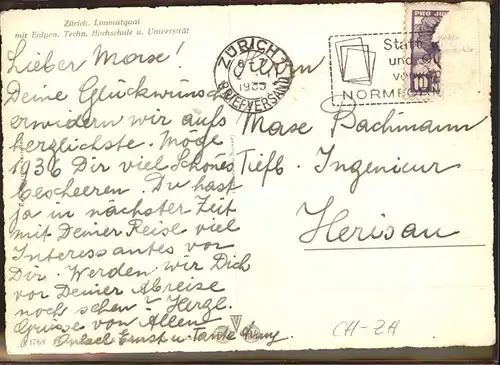 Zürich. Limmatquai
mit Eidgen. Techn. Hochschule u. Universität
Lieber Marse!
Deine Glückwünsch
erwidern wir aufs
herzlichste. Möge
1936 Dir viel Schönes
bescheeren. Du hast
ja in nächster Zeit
mit Deiner Reise viel
Interessantes vor
Dir. Werden wir Dich
vor Deiner Abreise
noch sehen? Herzl.
Grüsse von Allen
Onkel Ernst u. Tante
1768
ZÜRICH
1935
BRIEFVERSAND
Statt
und
NORME
PRO JU
10
Herrn
Marse Bachmann
Tiefb. Ingenieur
Herisau
CH-ZH